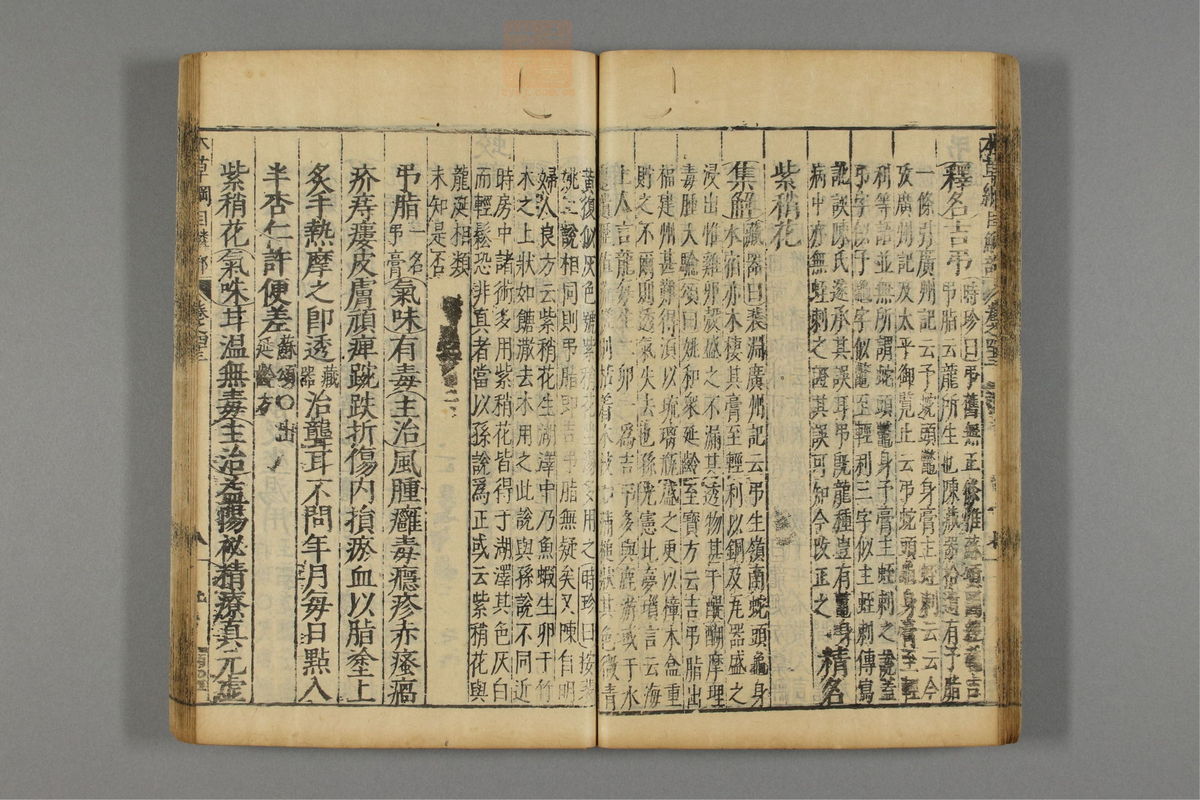 本草綱目鱗部
釋名吉弔 時珍曰弔舊無正條惟蘇頌圖經載吉
弔脂云龍所生也陳藏器拾遺有予脂
一條引廣州記云予蛇頭鼈身膏主蛭刺云云今
攷廣州記及太平御覽止云弔蛇頭龜身膏至輕
利等語並無所謂蛇頭鼈身予膏主蛭刺之說蓋
弔字似予字似鼈至輕利三字似主蛭刺傳寫
訛誤陳氏遂承其誤耳弔既龍種豈有鼈身
病中亦無蛭刺之證其誤可知今改正之 精名
紫稍花
集解 藏器曰裴淵廣州記云弔生嶺南蛇頭龜身
水宿亦木棲其膏至輕利以銅及瓦器盛之
浸出惟雞卵殼盛之不漏其透物甚于醍醐摩理
毒腫大驗頌曰姚和衆延齡至寶方云吉弔脂出
福建州甚難得須以琉璃瓶盛之更以樟木盒重
貯之不爾則透氣失去也孫光憲北夢瑣言云海
上人言龍每生二卵一爲吉弔多與鹿游或于水
邊遺瀝值流槎則粘着木枝如蒲槌狀其色微青
黃復似灰色號紫稍花坐湯多用之時珍曰按裴
姚二說相同則弔脂即吉弔脂無疑矣又陳自明
婦人良方云紫稍花生湖澤中乃魚蝦生卵于竹
木之上狀如餹潵去木用之此說與孫說不同近
時房中諸術多用紫稍花皆得于湖澤其色灰白
而輕鬆恐非真者當以孫說爲正或云紫稍花與
龍涎相類
未知是否
弔脂一名弔膏 氣味有毒主治風腫癰毒癮疹赤瘙瘑
疥痔瘻皮膚頑痺踠跌折傷內損瘀血以脂塗上
炙手熱摩之即透藏器治聾耳不問年月每日點入
半杏仁許便差蘇頌○出延齡方
紫稍花氣味甘温無毒主治益陽祕精療真元虛
本草綱目鱗部